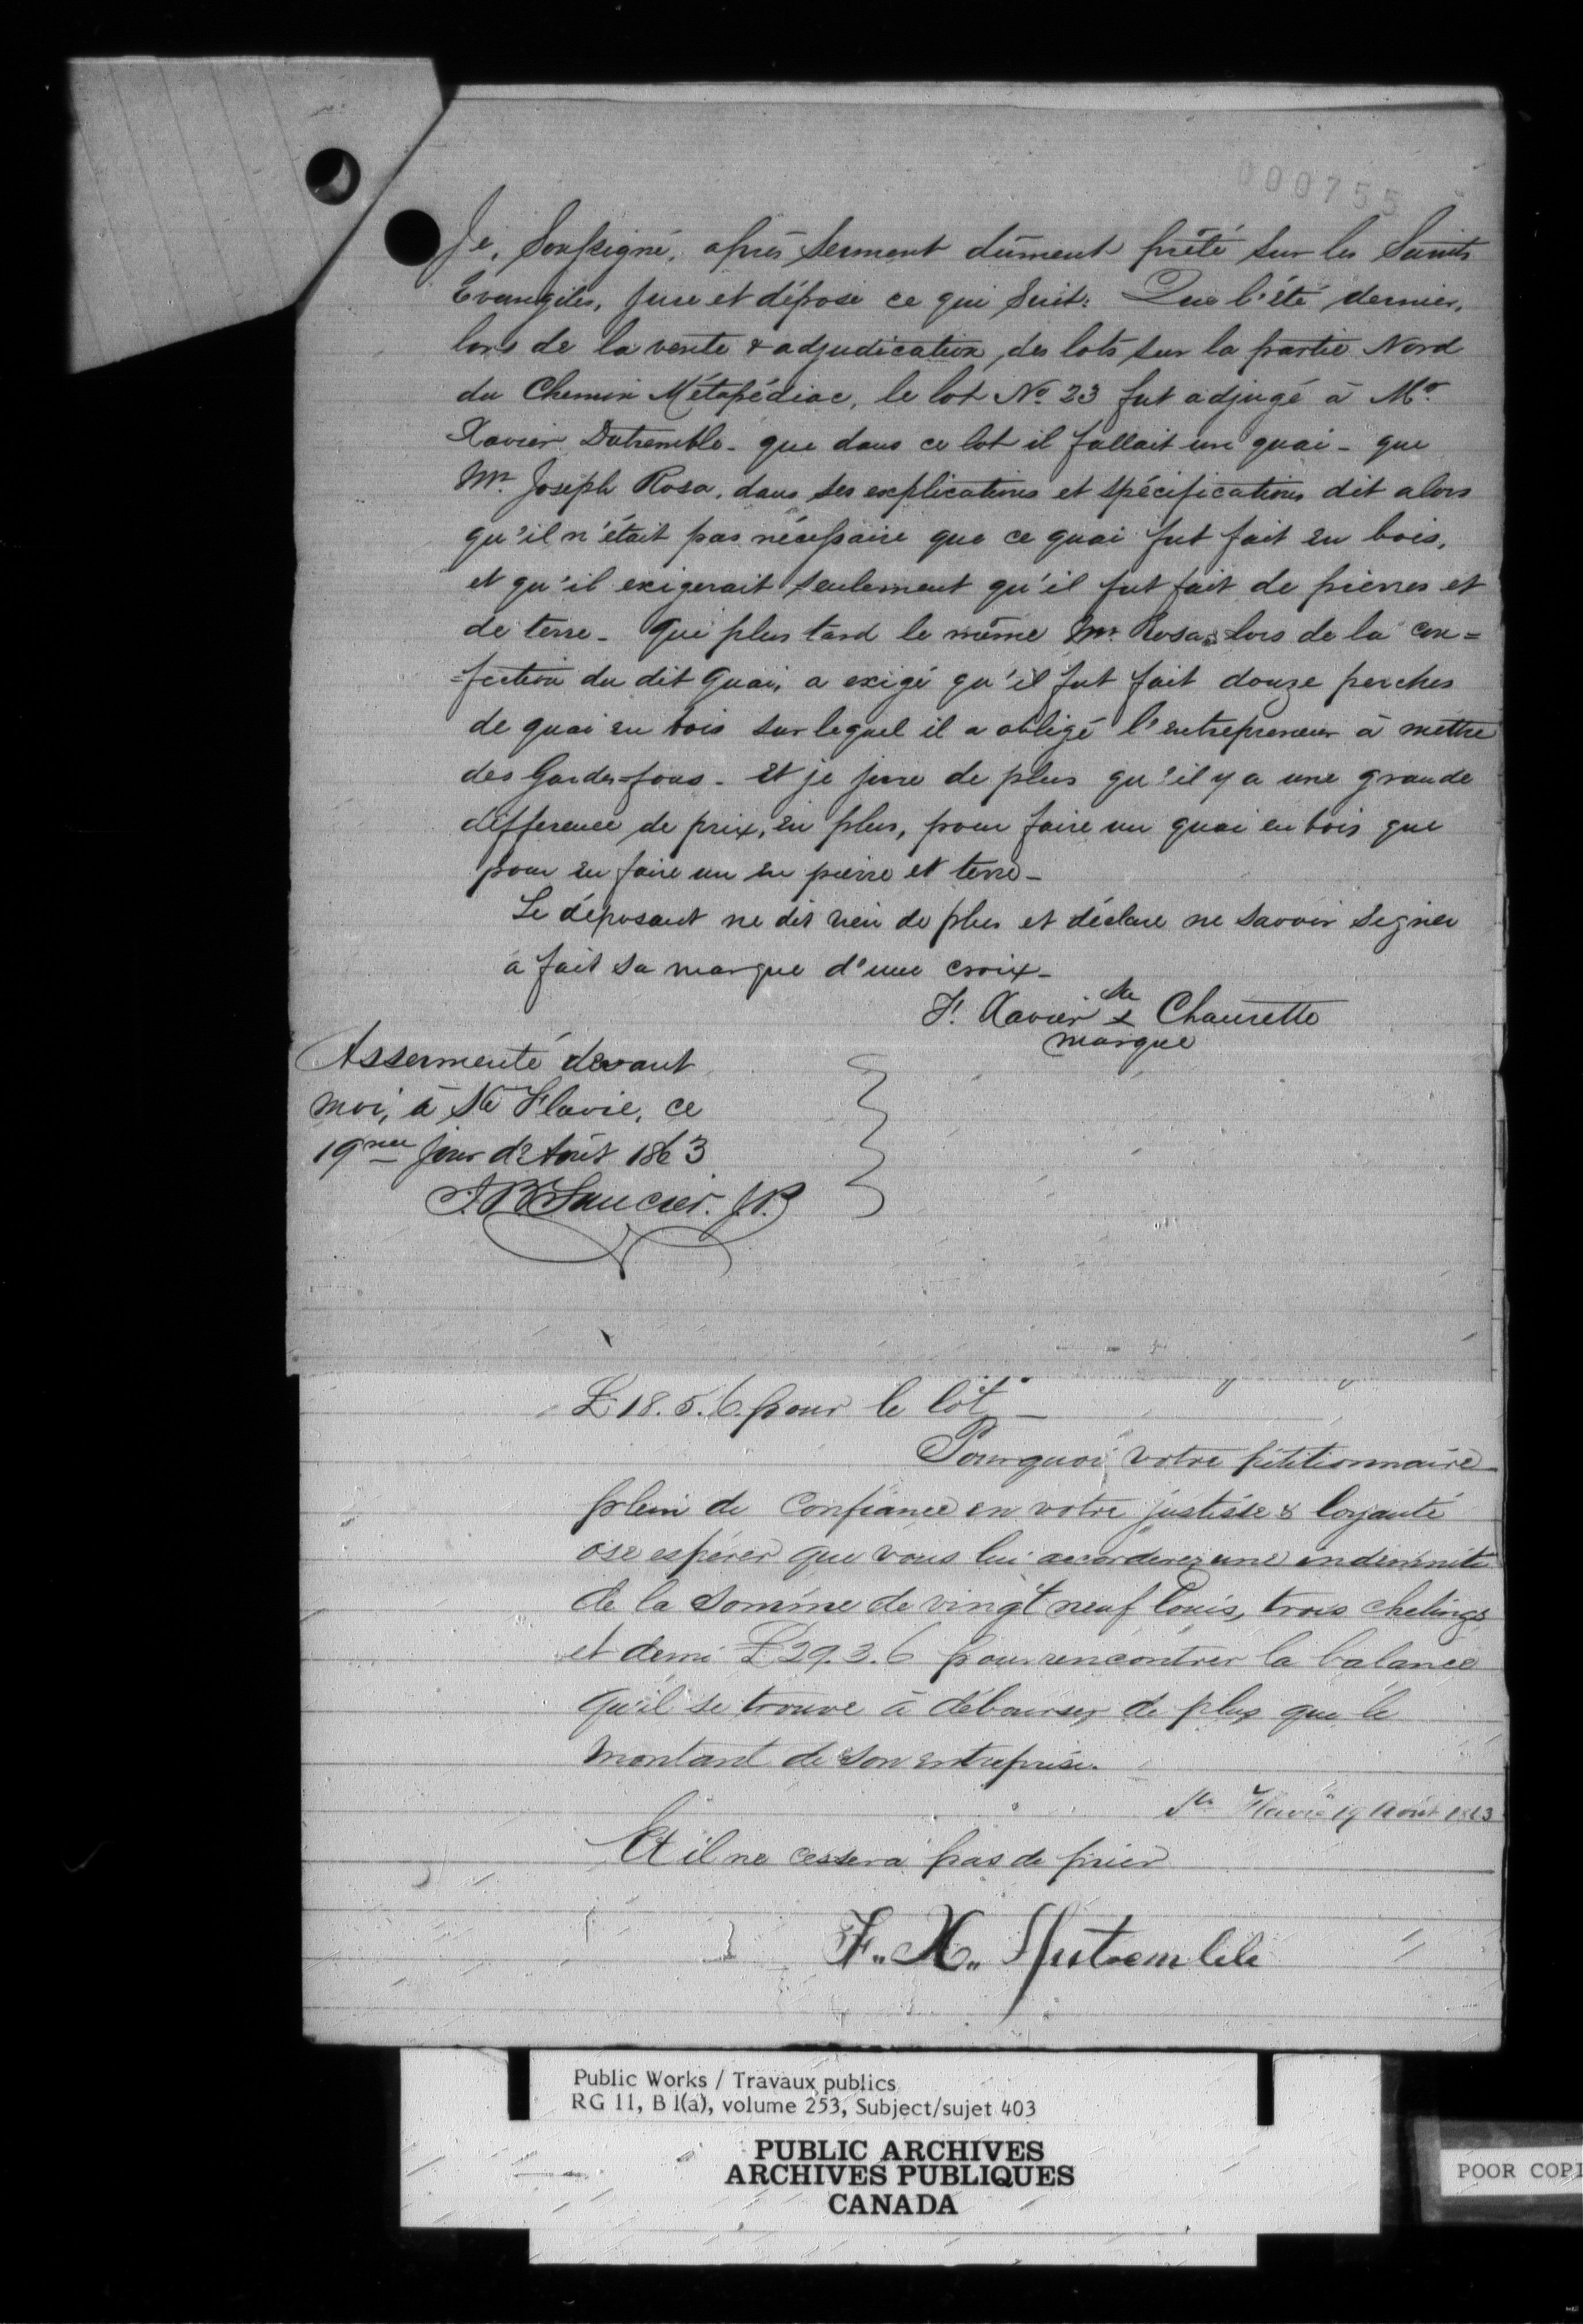 000755
Je, Soussigné, après serment dûment prêté sur les Saints
Evangiles, jure et dépose ce qui suit: Que l'été dernier,
lors de la vente & adjudication des lots sur la partie Nord
du Chemin Métapédiac, le lot No 23 fut adjugé à Mr
Xavier Dutremble - que dans ce lot il fallait un quai - que
Mr Joseph Rosa, dans ses explications et spécifications dit alors
qu'il n'était pas nécessaire que ce quai fut fait en bois,
et qu'il exigerait seulement qu'il fut fait de pierres et
de terre - Que plus tard le même Mr Rosa, lors de la con=
=fection du dit Quai, a exigé qu'il fut fait douze perches
de quai en bois sur lequel il a obligé l'entrepreneur à mettre
des Gardes-fous - Et je jure de plus qu'il y a une grande
difference de prix, en plus, pour faire un quai en bois que
pour en faire un en pierre et terre -
Le déposant ne dit rien de plus et déclare ne savoir signer
a fait sa marque d'une croix -
F. Xavier sa x Chaurette
marque
Assermenté devant
moi, à Ste Flavie, ce
19me jour d'Août 1863
J.B Saucier. J.P.
£18.5.6 pour le lot -
Pourquoi votre pétitionnaire
plein de Confiance en votre justisse & loyauté
ose espérer que vous lui accorderez une indemnité
de la somme de vingt neuf Louis, trois chelings
et demi £29.3.6 pour rencontrer la balance
qu'il se trouve à débourser de plus que le
montant de son entreprise.
Ste Flavie 19 Août 1863
Et il ne cessera pas de prier
F. X. Dutremble
Public Works / Travaux publics
RG 11, B 1(a), volume 253, Subject/sujet 403
PUBLIC ARCHIVES
ARCHIVES PUBLIQUES
CANADA
POOR COPI